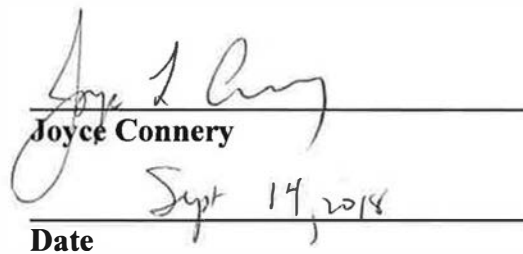 Joyce L Connery
Joyce Connery
Sept 14, 2018
Date